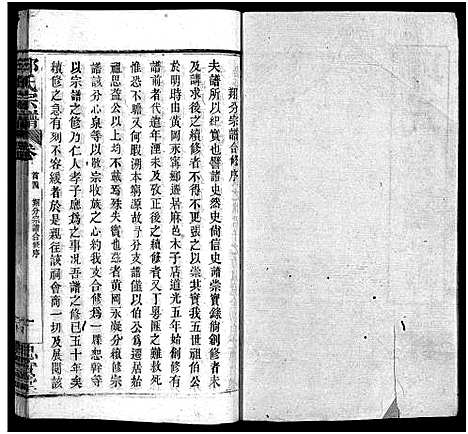 翔分宗譜合修序
夫譜所以紀實也譬諸史然史尚信史譜崇實錄倘創修者未
及以講求續修者不得不更張之以崇其實我五世祖旬公
於明時由黃岡永寧鄉遷居麻邑木子店道光五年始創修有
譜前者代遠年湮未及攷正後者續修又丁粵匪之難救死
惟恐不贍又何暇溯本窮源故分支譜僅以伯公為遷居祖
思孟公以上均不載焉殊失實也茲者黃岡永凝分續修宗
譜該分心泉等以敬宗收族之心約我支合修爲一牒恕幹等
以宗譜之修乃仁人孝子應爲之事况吾譜之修已五十年矣
續修之急有刻不容緩者於是親往該祠會商一切及展閱該
氏宗譜
卷
首四
翔分宗譜合修序